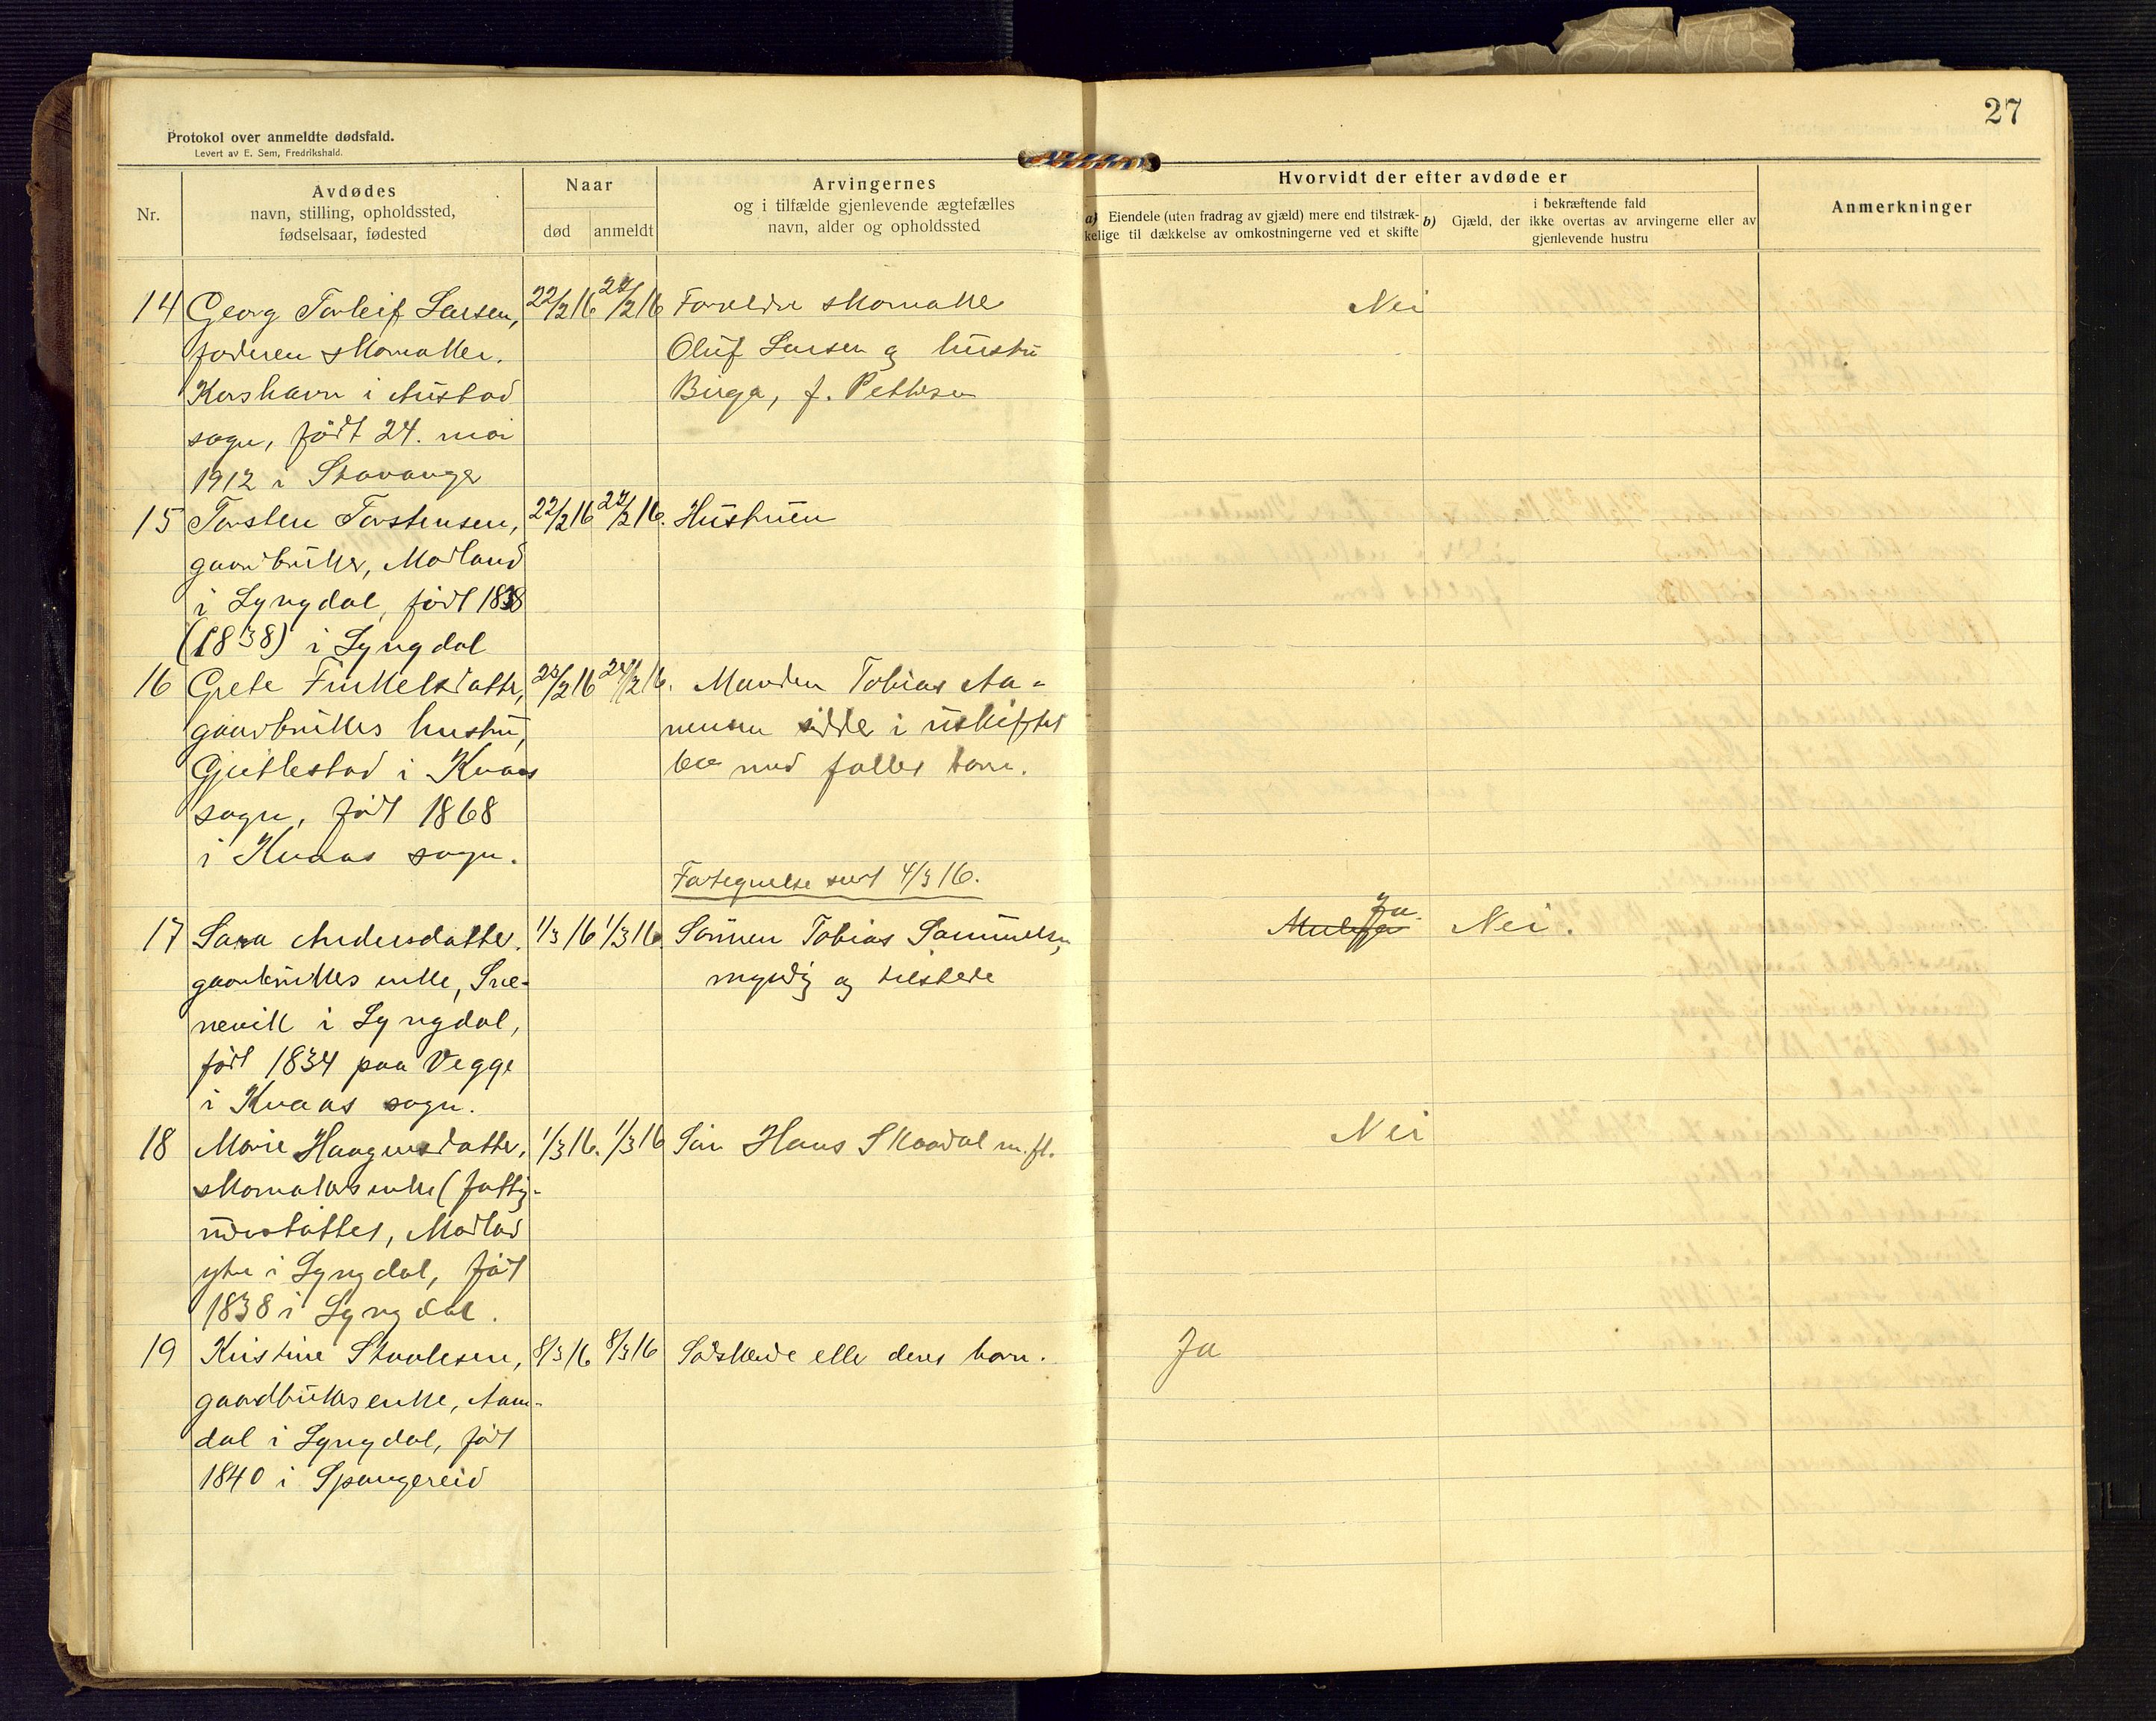 27
Protokol over anmeldte dødsfald.
Levert av E. Sem, Fredrikshald.
Nr.
Avdødes
navn, stilling, opholdssted,
fødselsaar, fødested
Naar
død
anmeldt
Arvingernes
og i tilfælde gjenlevende ægtefælles
navn, alder og opholdssted
Hvorvidt der efter avdøde er
a) Eiendele (uten fradrag av gjæld) mere end tilstræk-
kelige til dækkelse av omkostningerne ved et skifte
i bekræftende fald
b) Gjæld, der ikke overtas av arvingerne eller av
gjenlevende hustru
Anmerkninger
14 Georg Torleif Larsen, 22/2 16 24/2 16 Foreldre skomaker Nei
faderen skomaker. Oluf Larsen og hustru
Korshavn i Austad Birga, f. Pettersen
sogn, født 24. mai
1912 i Stavanger
15 Torsten Torstensen, 22/2 16 24/2 16. Hustruen
gaardbruker, Møland
i Lyngdal, født 1838
(1838) i Lyngdal
16 Grete Tinkelsdatter, 23/2 16 24/2 16. Manden Tobias Aa-
gaardbrukers hustru, nensen sidder i uskiftet
Gjitlestad i Kvaas bo med fælles barn.
sogn, født 1868
i Kvaas sogn.
Fortegnelse sendt 4/3 16.
17 Sara Andersdatter. 1/3 16 1/3 16 Sønnen Tobias Samuelsen, Ja. Nei.
gaardbrukers enke, Sve- myndig og tilstede
nevik i Lyngdal,
født 1834 paa Vegge
i Kvaas sogn.
18 Marie Haagensdatter, 1/3 16. 1/3 16 Søn Hans Skaadal m. fl. Nei
skomakers enke (fattig-
understøttet, Møland
ytre i Lyngdal, født
1838 i Lyngdal.
19 Kristine Staalesen, 8/3 16 8/3 16 Sødskende eller deres barn. Ja
gaardbrukers enke, Aam-
dal i Lyngdal, født
1840 i Spangereid